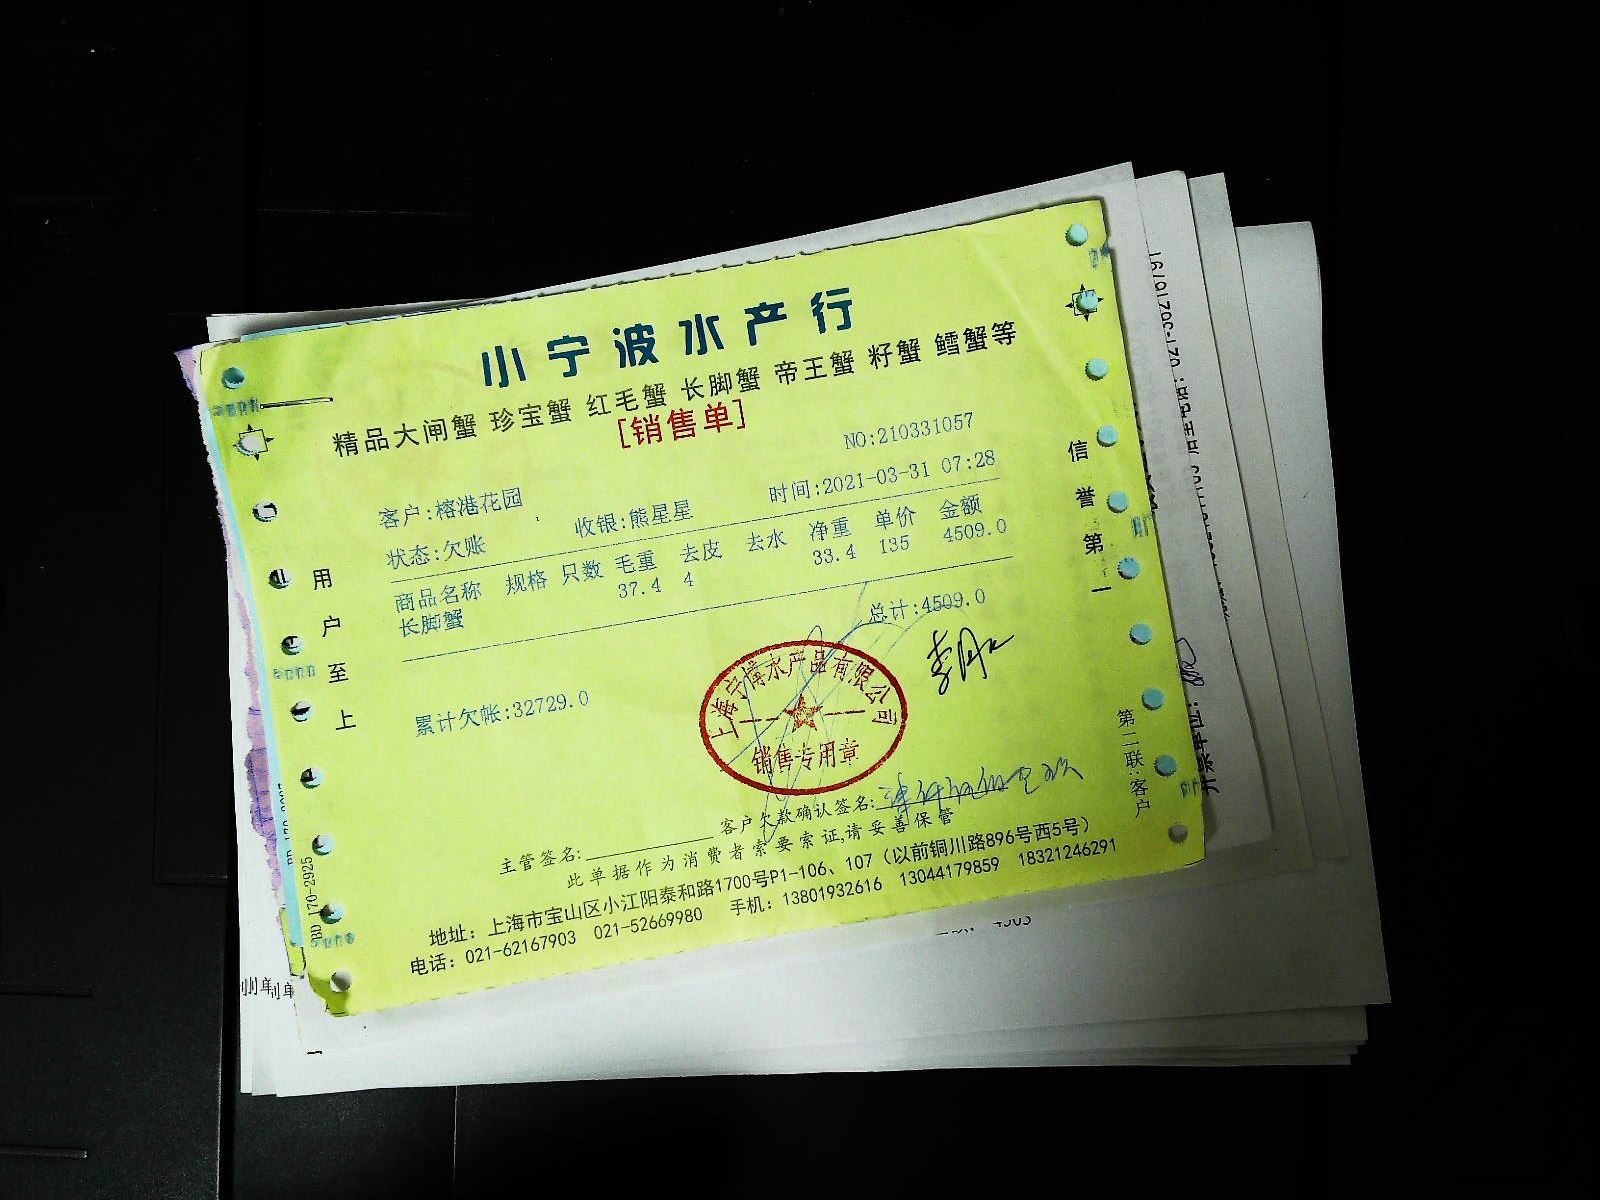 小宁波水产行
精品大闸蟹 珍宝蟹 红毛蟹 长脚蟹 帝王蟹 籽蟹 鳕蟹等
[销售单]
NO:210331057
客户:榕港花园
收银:熊星星
时间:2021-03-31 07:28
状态:欠账
商品名称 规格 只数 毛重 去皮 去水 净重 单价 金额
长脚蟹 37.4 4 33.4 135 4509.0
总计:4509.0
累计欠帐:32729.0
上海宁博水产品有限公司
销售专用章
主管签名:
客户欠款确认签名:
此单据作为消费者索要索证,请妥善保管
地址：上海市宝山区小江阳泰和路1700号P1-106、107（以前铜川路896号西5号）
电话：021-62167903 021-52669980 手机：13801932616 13044179859 18321246291
用户至上
信誉第一
第二联:客户
BD 170-2925